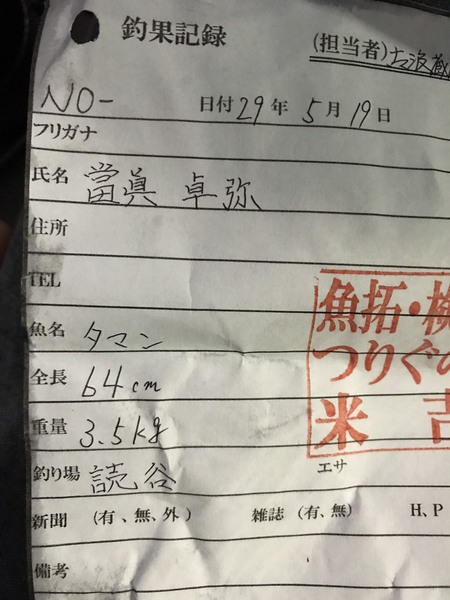 釣果記録
(担当者)古波蔵
NO-
日付 29年 5月 19日
フリガナ
氏名 當眞 卓弥
住所
TEL
魚名 タマン
全長 64cm
重量 3.5kg
釣り場 読谷
エサ
新聞 (有、無、外) 雑誌 (有、無) H、P
備考
魚拓・検
つりぐの
米吉